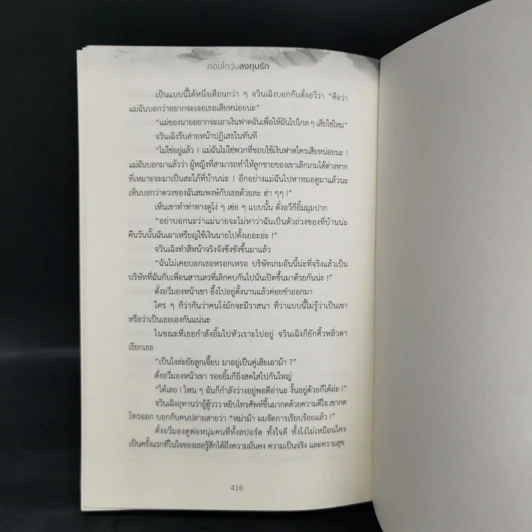 คอนโดวุ่นลงทุนรัก
เป็นแบบนี้ได้หนึ่งเดือนกว่า ๆ จวินเฉิงบอกกับตั่งอวี้ว่า “คือว่า
แม่ฉันบอกว่าอยากจะเจอเธอเสียหน่อยน่ะ”
“แม่ของนายอยากจะเอาเงินฟาดฉันเพื่อให้ฉันไปไกล ๆ เสียใช่ไหม”
จวินเฉิงรีบส่ายหน้าปฏิเสธในทันที
“ไม่ใช่อยู่แล้ว ! แม่ฉันไม่ใช่พวกที่ชอบใช้เงินฟาดใครเสียหน่อยนะ !
แม่ฉันบอกมาแล้วว่า ผู้หญิงที่สามารถทำให้ลูกชายของเขาเลิกเกมได้ต่างหาก
ที่เหมาะจะมาเป็นสะใภ้ที่บ้านน่ะ ! อีกอย่างแม่ฉันไปหาหมอดูมาแล้วนะ
เห็นบอกว่าดวงของฉันสมพงษ์กับเธอด้วยละ ฮ่า ๆๆ !”
เห็นเขาทำท่าทางดูโง่ ๆ เซ่อ ๆ แบบนั้น ตั่งอวี้ก็ยิ้มมุมปาก
“อย่าบอกนะว่าแม่นายจะไม่หาว่าฉันเป็นตัวถ่วงของที่บ้านน่ะ
คืนวันนั้นฉันเผาเหรียญใช้เงินนายไปตั้งเยอะอ่ะ !”
จวินเฉิงทำสีหน้าจริงจังขึงขังขึ้นมาแล้ว
“ฉันไม่เคยบอกเธอหรอกเหรอ บริษัทเกมอันนี้น่ะที่จริงแล้วเป็น
บริษัทที่ฉันกับเพื่อนสารเลวที่เลิกคบกันไปนั้นเปิดขึ้นมาด้วยกันน่ะ !”
ตั่งอวี้มองหน้าเขา อึ้งไปอยู่ตั้งนานแล้วค่อยขำออกมา
ใคร ๆ ก็ว่ากันว่าคนโง่มักจะมีวาสนา ที่ว่าแบบนี้ไม่รู้ว่าเป็นเขา
หรือว่าเป็นเธอเองกันแน่นะ
ในขณะที่เธอกำลังยิ้มไปหัวเราะไปอยู่ จวินเฉิงก็ยักคิ้วหลิ่วตา
เรียกเธอ
“เป็นไงล่ะยัยลูกเจี๊ยบ มาอยู่เป็นคู่เฮียเอาม้า ?”
ตั่งอวี้มองหน้าเขา รอยยิ้มก็ยิ่งสดใสไปกันใหญ่
“ได้เลย ! ไหน ๆ ฉันก็กำลังว่างอยู่พอดีอ่านะ งั้นอยู่ด้วยก็ได้อ่ะ !”
จวินเฉิงอุทานว่าอู้ฮู้ววว หยิบโทรศัพท์ขึ้นมากดด้วยความดีใจ เขากด
โทรออก บอกกับคนปลายสายว่า “หม่าม้า ผมจัดการเรียบร้อยแล้ว !”
ตั่งอวี้มองดูพ่อหนุ่มคนที่ทั้งสปอร์ต ทั้งใจดี ทั้งโง่ไม่เหมือนใคร
เป็นครั้งแรกที่ในใจของเธอรู้สึกได้ถึงความมั่นคง ความเป็นจริง และความสุข
416